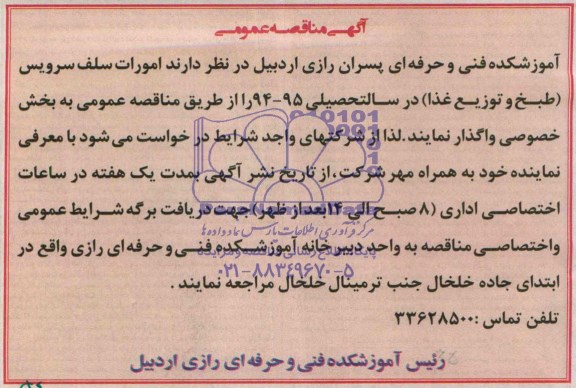 آگهی مناقصه عمومی
آموزشکده فنی و حرفه ای پسران رازی اردبیل در نظر دارند امورات سلف سرویس
(طبخ و توزیع غذا) در سالتحصیلی ۹۵-۹۴را از طریق مناقصه عمومی به بخش
خصوصی واگذار نمایند.لذا از شرکتهای واجد شرایط در خواست می شود با معرفی
نماینده خود به همراه مهر شرکت،از تاریخ نشر آگهی بمدت یک هفته در ساعات
اختصاصی اداری (۸ صبح الی ۱۴بعد از ظهر)جهت دریافت برگه شرایط عمومی
واختصاصی مناقصه به واحد دبیرخانه آموزشکده فنی و حرفه ای رازی واقع در
ابتدای جاده خلخال جنب ترمینال خلخال مراجعه نمایند .
تلفن تماس :۳۳۶۲۸۵۰۰
رئیس آموزشکده فنی و حرفه ای رازی اردبیل
مرکز فرآوری اطلاعات پارس نماد داده ها
۰۲۱-۸۸۳۴۹۶۷۰-۵